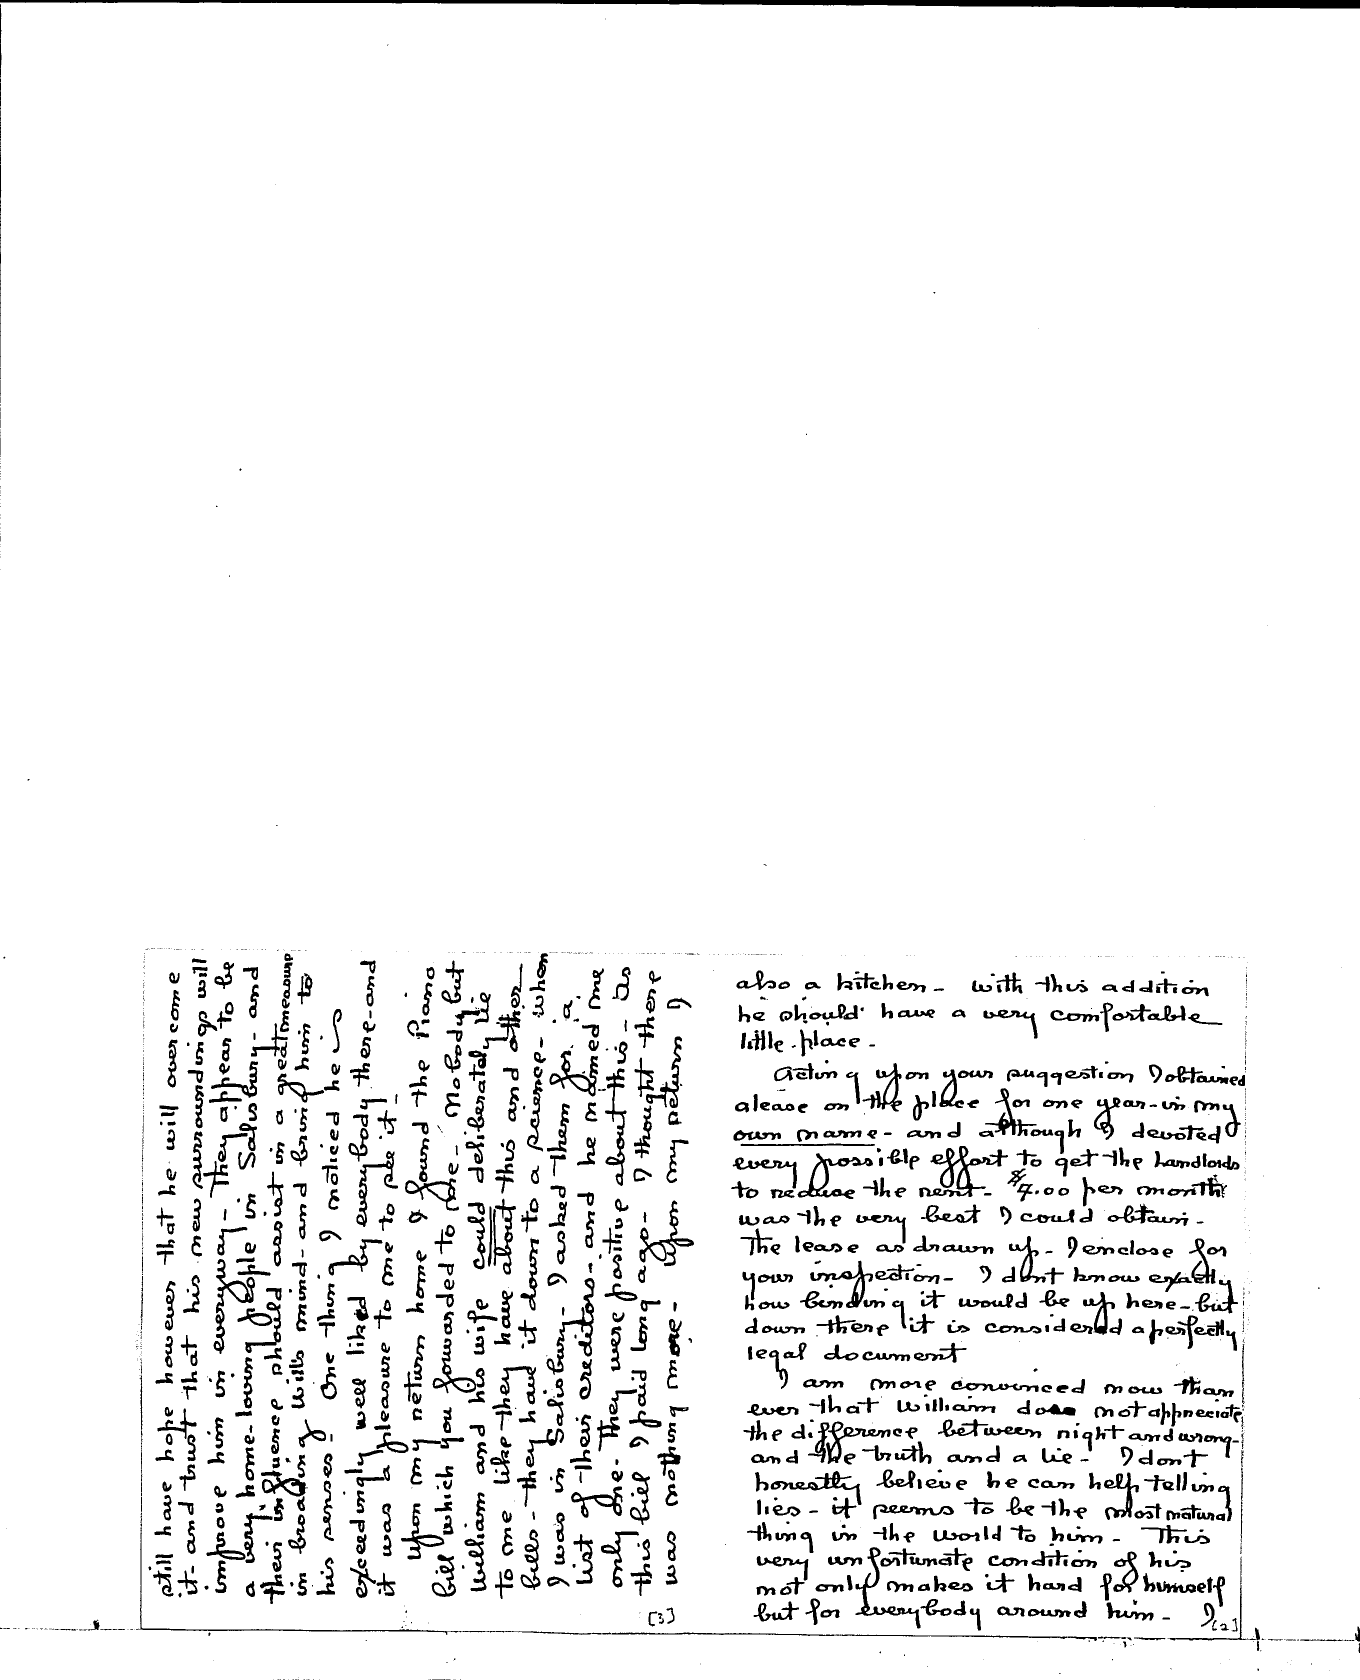 also a kitchen - with this addition
he should have a very comfortable
little place -
Acting upon your suggestion I obtained
a lease on the place for one year - in my
own name - and although I devoted
every possible effort to get the landlords
to reduce the rent - $7.00 per month
was the very best I could obtain -
The lease as drawn up - I enclose for
your inspection - I dont know exactly
how binding it would be up here - but
down there it is considered a perfectly
legal document
I am more convinced now than
ever that William does not appreciate
the difference between right and wrong -
and the truth and a lie - I dont
honestly believe he can help telling
lies - it seems to be the most natural
thing in the world to him - This
very unfortunate condition of his
not only makes it hard for himself
but for everybody around him - I
[2]
still have hope however that he will overcome
it - and trust that his new surroundings will
improve him in everyway - They appear to be
a very home-loving people in Salisbury - and
their influence should assist in a great measure
in broading Wills mind - and bring him to
his senses - One thing I noticed he
exceedingly well liked by everybody there - and
it was a pleasure to me to see it!
Upon my return home I found the Piano
bill which you fowarded to me - Nobody but
William and his wife could deliberately lie
to me like they have about this and other
bills - they have it down to a science - when
I was in Salisbury - I asked them for a
list of their creditors - and he named me
only one - They were positive about this - As
this bill I paid long ago - I thought there
was nothing more - Upon my return I
[3]